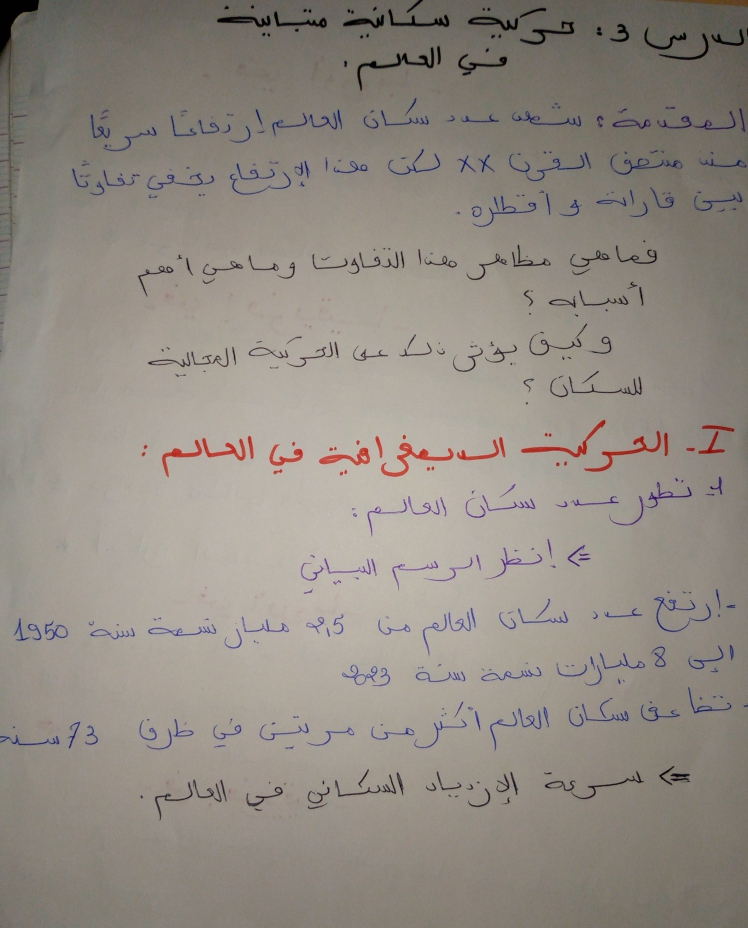 الدرس 3: حركية سكانية متباينة
في العالم.
المقدمة: شهد عدد سكان العالم إرتفاعًا سريعًا
منذ منتصف القرن XX لكن هذا الإرتفاع يخفي تفاوتًا
بين قاراته و أقطاره.
فماهي مظاهر هذا التفاوت وماهي أهم
أسبابه ؟
و كيف يؤثر ذلك على الحركية المجالية
للسكان ؟
I- الحركية الديمغرافية في العالم :
1- تطور عدد سكان العالم :
⇐ إنظر الرسم البياني
- إرتفع عدد سكان العالم من 2,5 مليار نسمة سنة 1950
الى 8 مليارات نسمة سنة 2023
- تضاعف سكان العالم أكثر من مرتين في ظرف 73 سنة
⇐ سرعة الإزدياد السكاني في العالم.